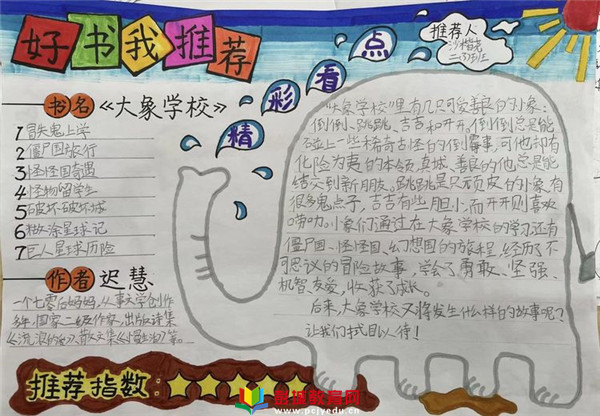 好书我推荐
推荐人
二(3)班
精彩看点
书名《大象学校》
1 冒失鬼上学
2 僵尸国旅行
3 怪怪国奇遇
4 怪物留学生
5 破坏破坏城
6 糊涂星球记
7 巨人星球历险
作者 迟慧
一个七零后妈妈,从事文学创作
多年,国家二级作家,出版诗集
散文集等。
推荐指数:
《大象学校》里有几只可爱善良的小象:
倒倒、跳跳、吉吉和开开。倒倒总是能
碰上一些稀奇古怪的倒霉事,可他却有
化险为夷的本领,真诚、善良的他总是能
结交到新朋友。跳跳是只顽皮的小象,有
很多鬼点子,吉吉有些胆小,而开开则喜欢
唠叨。小象们通过在大象学校的学习还有
僵尸国、怪怪国、幻想国的旅程,经历了不
可思议的冒险故事,学会了勇敢、坚强、
机智、友爱,收获了成长。
后来,大象学校又将发生什么样的故事呢?
让我们拭目以待!
www.pcjyedu.cn